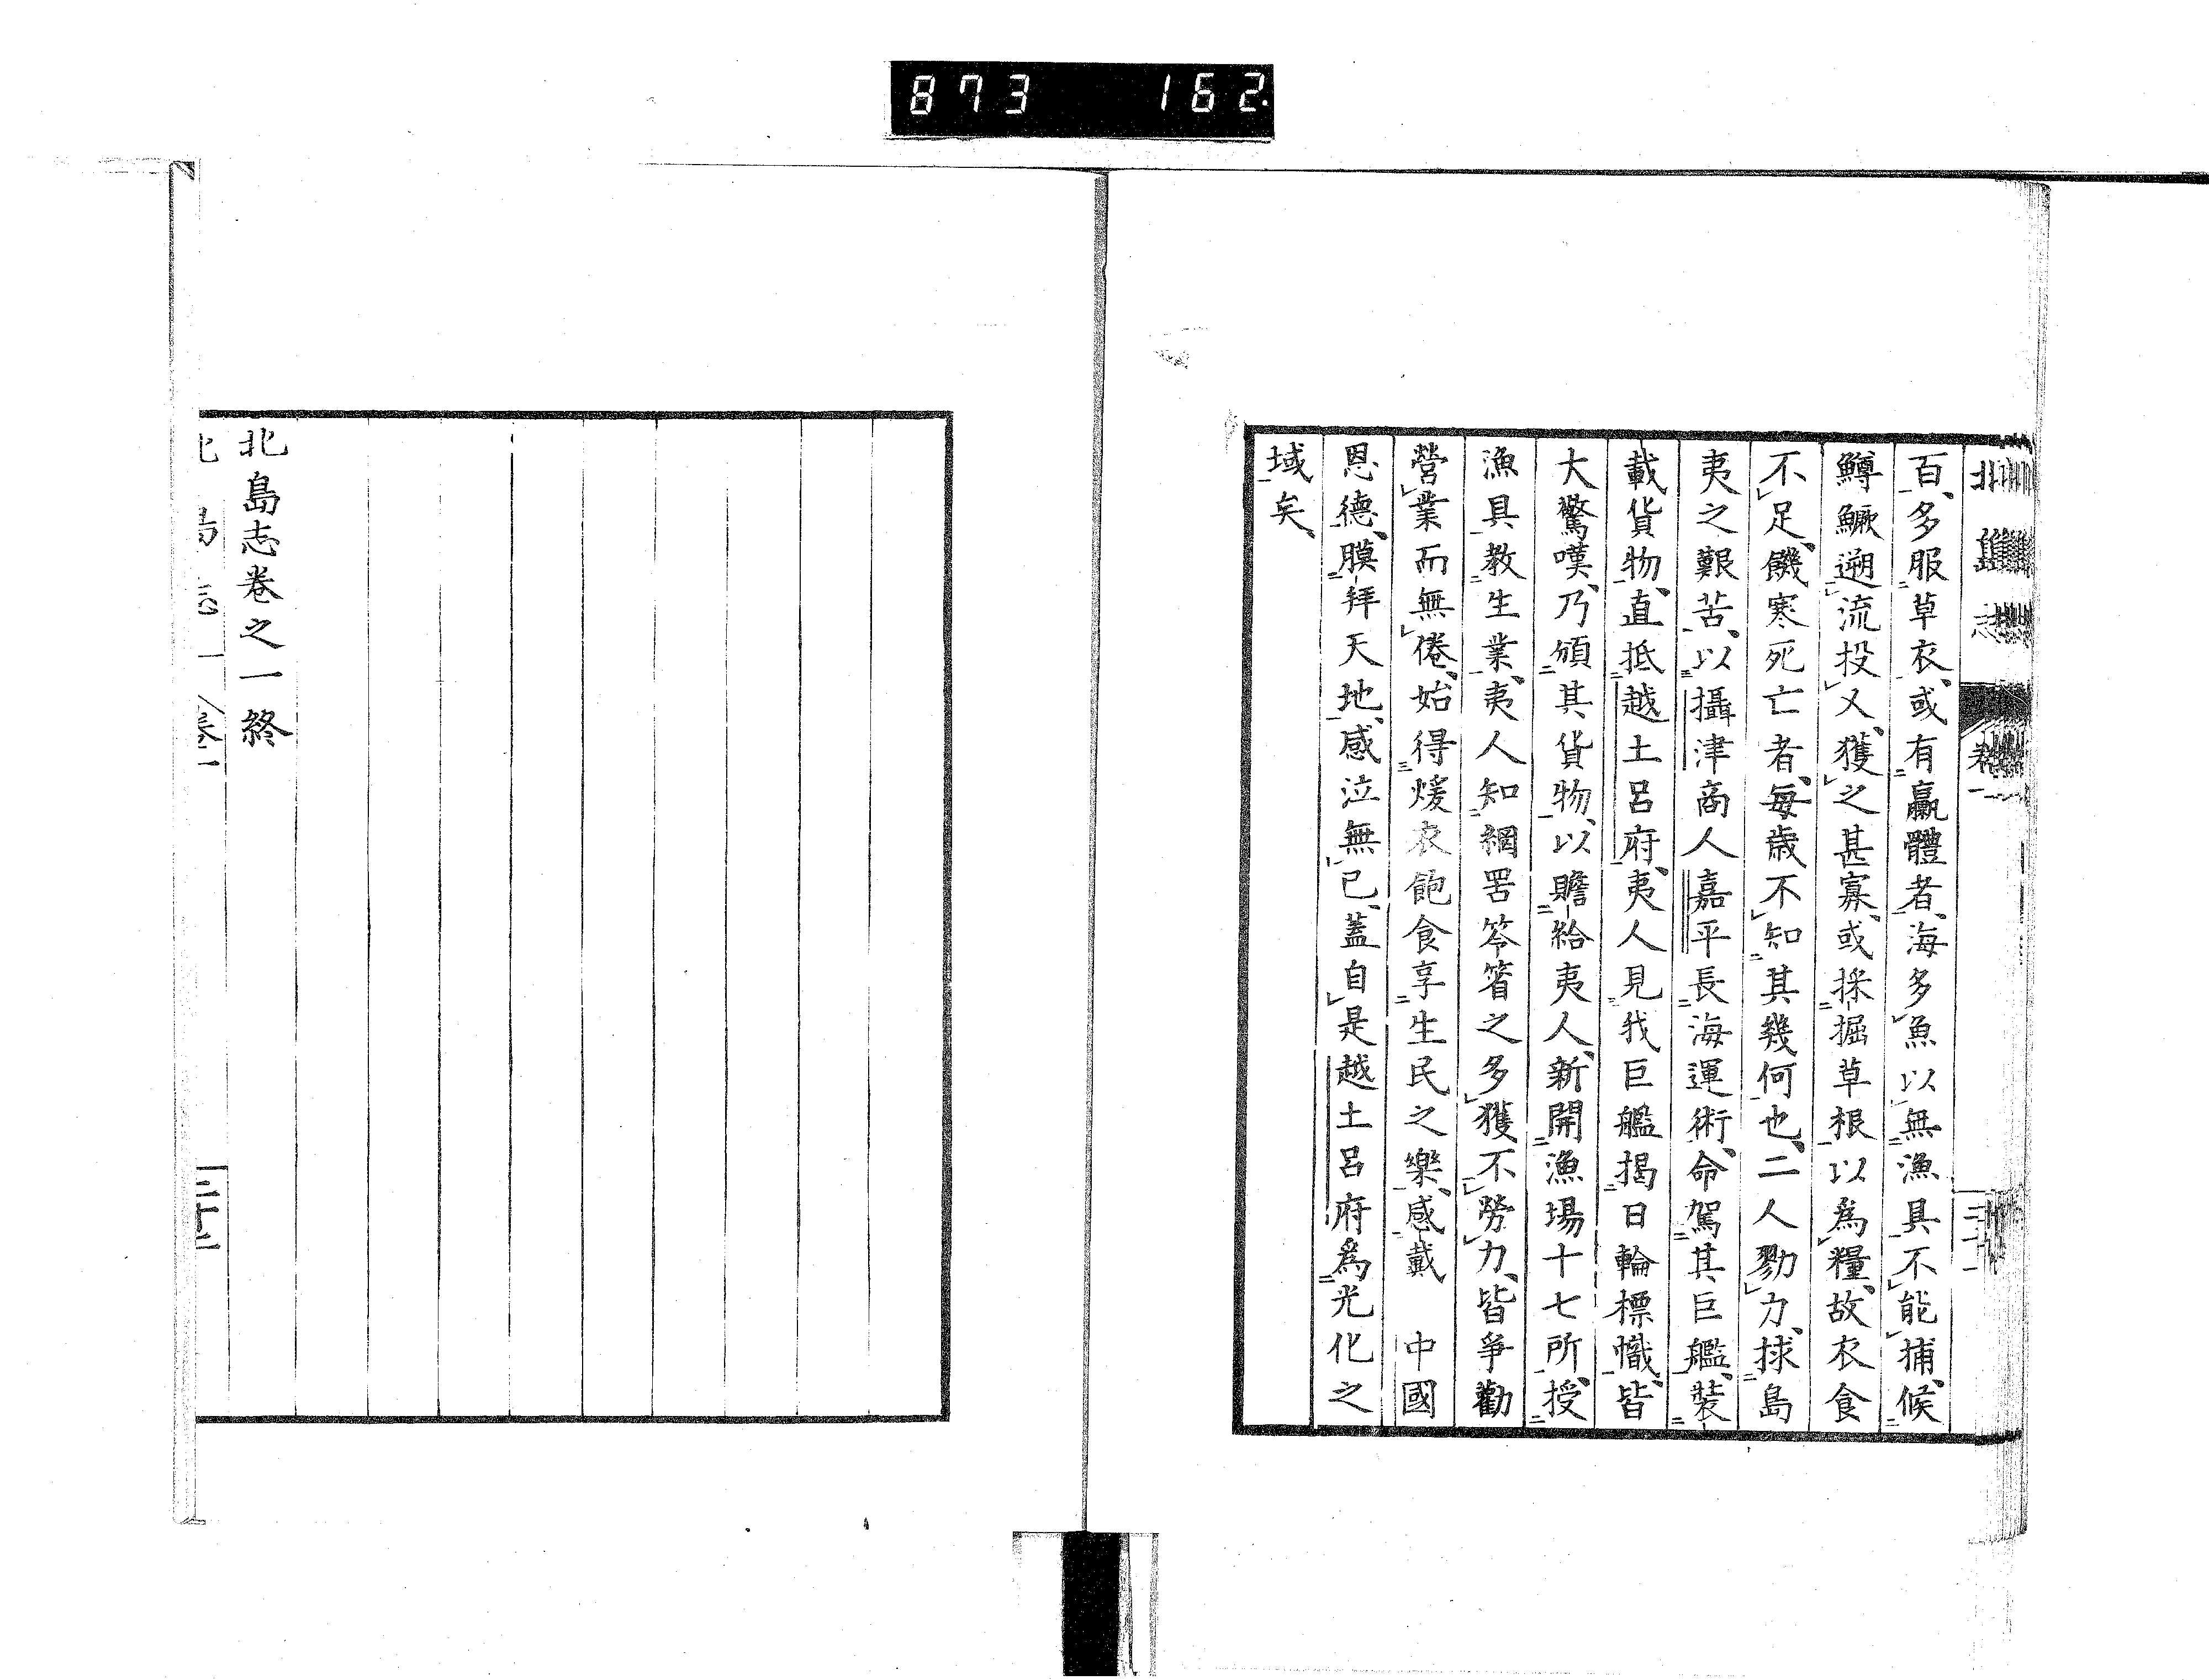 873 162.
北島志 卷一
百、多服草衣、或有羸體者、海多魚以無漁具不能捕、候
鱒鱖遡流投叉、獲之甚寡、或採掘草根以為糧、故衣食
不足、饑寒死亡者、每歲不知其幾何也、二人勠力、捄島
夷之艱苦、以攝津商人嘉平長海運術、命駕其巨艦、裝
載貨物、直抵越土呂府、夷人見我巨艦揭日輪標幟、皆
大驚嘆、乃頒其貨物、以贍給夷人、新開漁場十七所、授
漁具教生業、夷人知網罟笭箵之多獲不勞力、皆爭勸
營業而無倦、始得煖衣飽食享生民之樂、感戴 中國
恩德、膜拜天地、感泣無已、蓋自是越土呂府為光化之
域矣、
北島志卷之一終